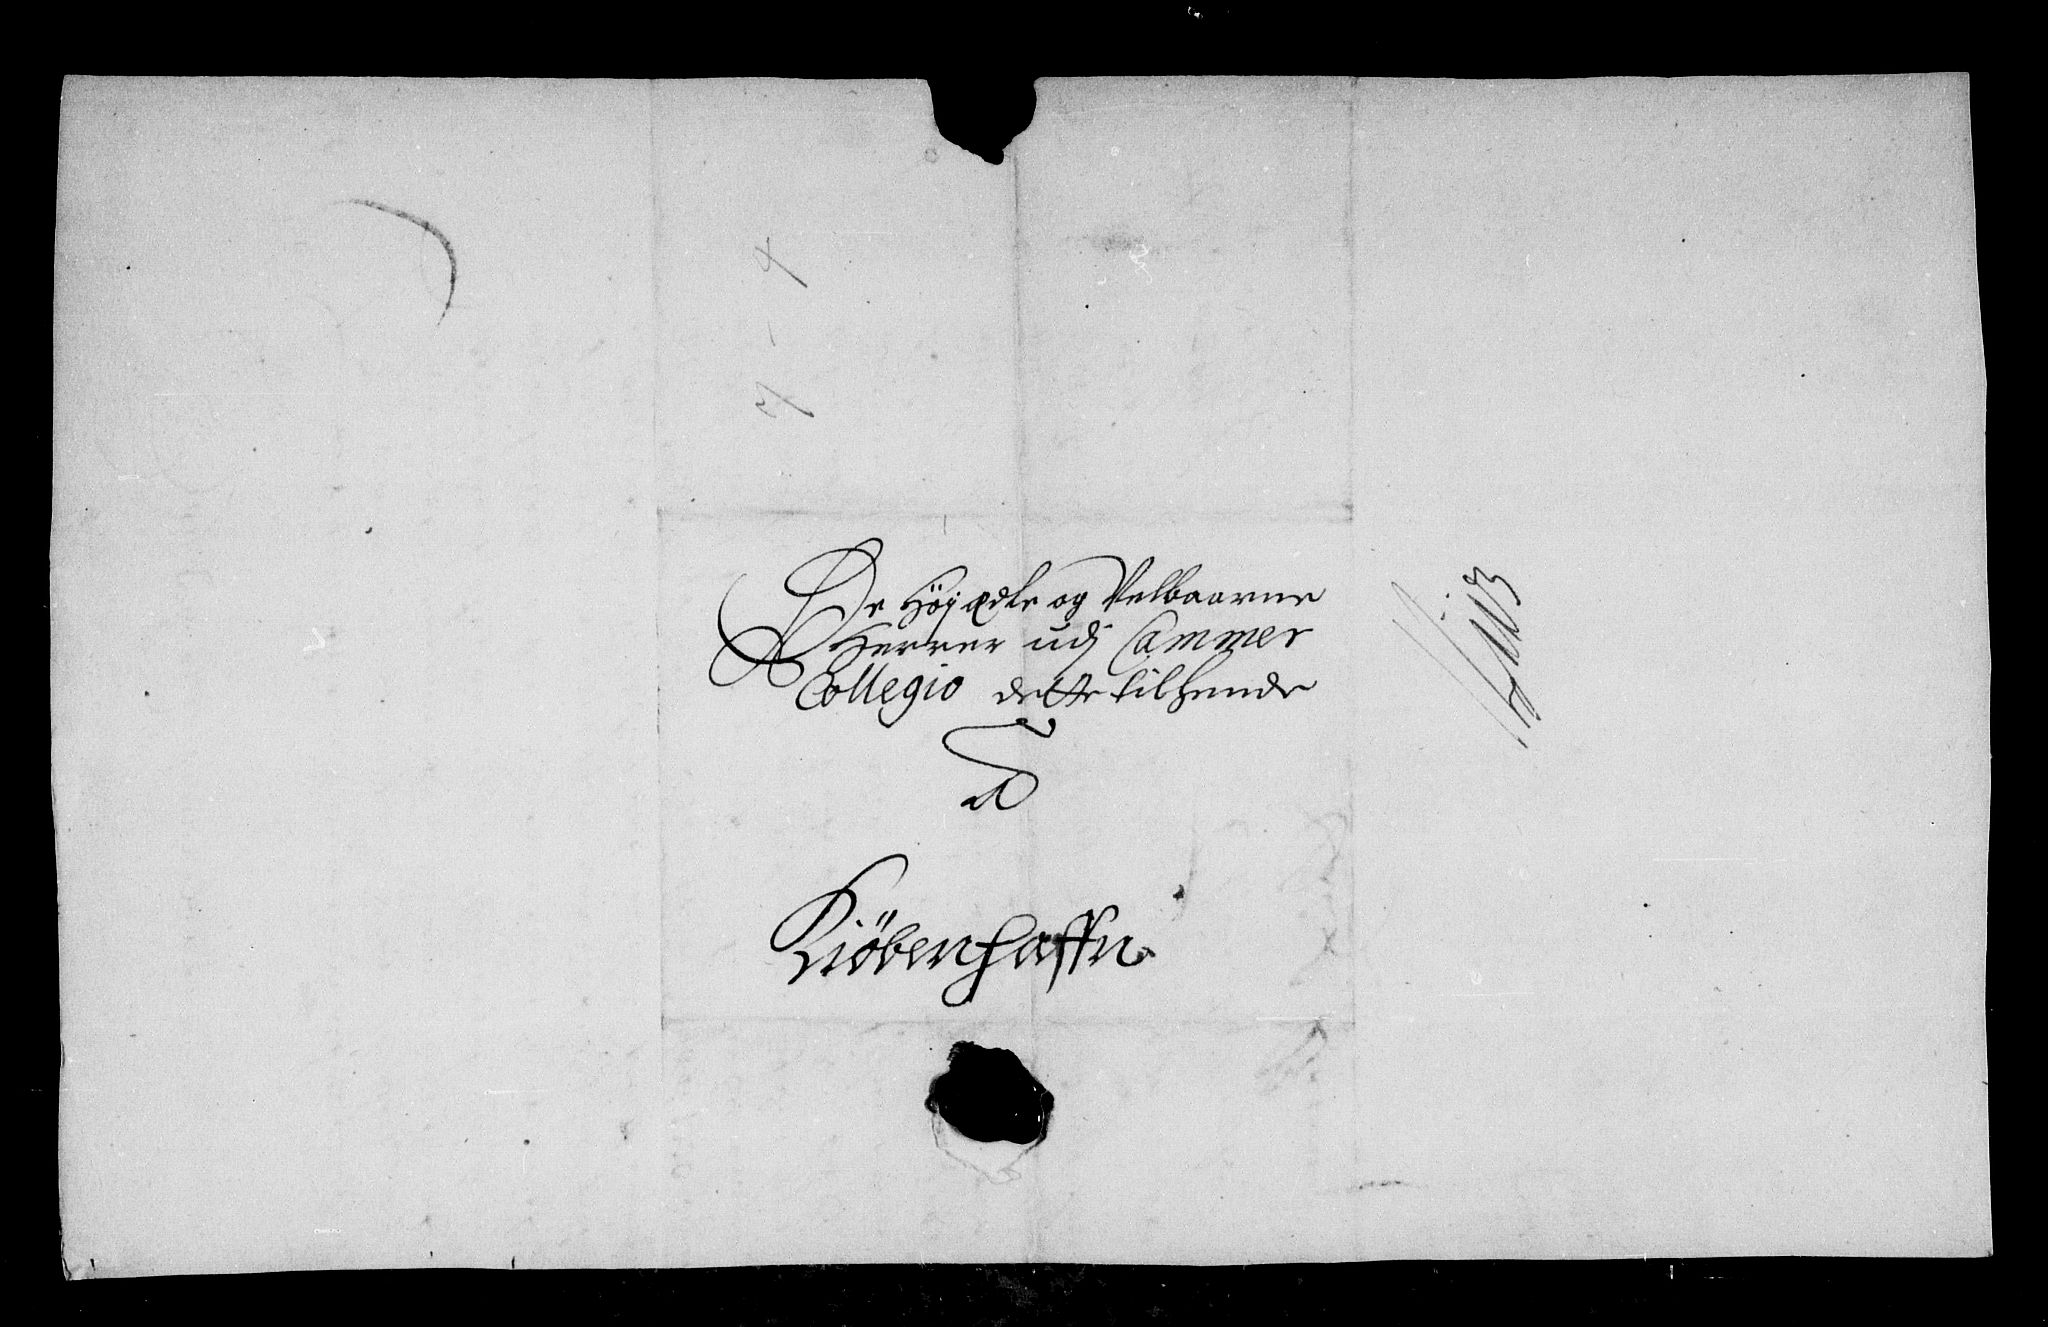 De Höÿ ædle og Velbaarne
Herrer udj Cammer
Collegio dette tilhende
A
Kiöbenhaffn